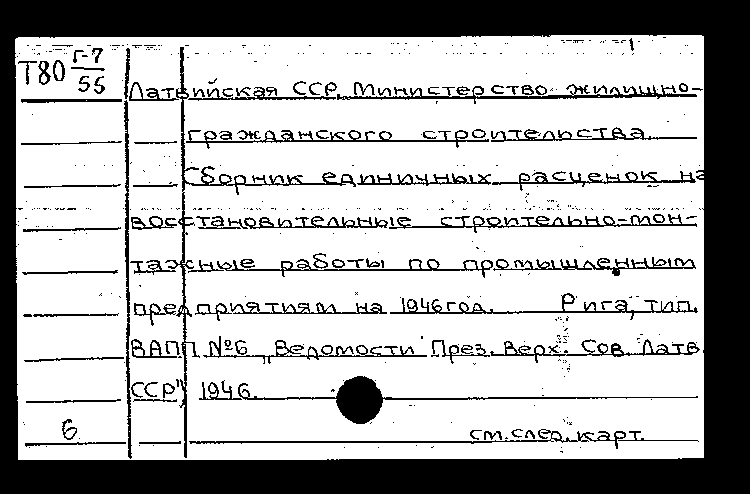 Т80 Г-7/55
Латвийская ССР. Министерство жилищно-
гражданского строительства.
Сборник единичных расценок на
восстановительные строительно-мон-
тажные работы по промышленным
предприятиям на 1946 год. Рига, тип.
ВАПП №6 „Ведомости През. Верх. Сов. Латв.
ССР", 1946.
6
см. след. карт.